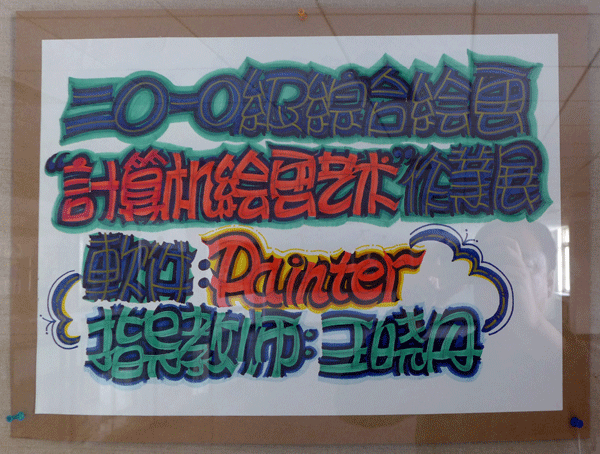 二〇一〇級綜合绘画
“計算机绘画艺术”作業展
軟件：Painter
指导教师：王晓丹